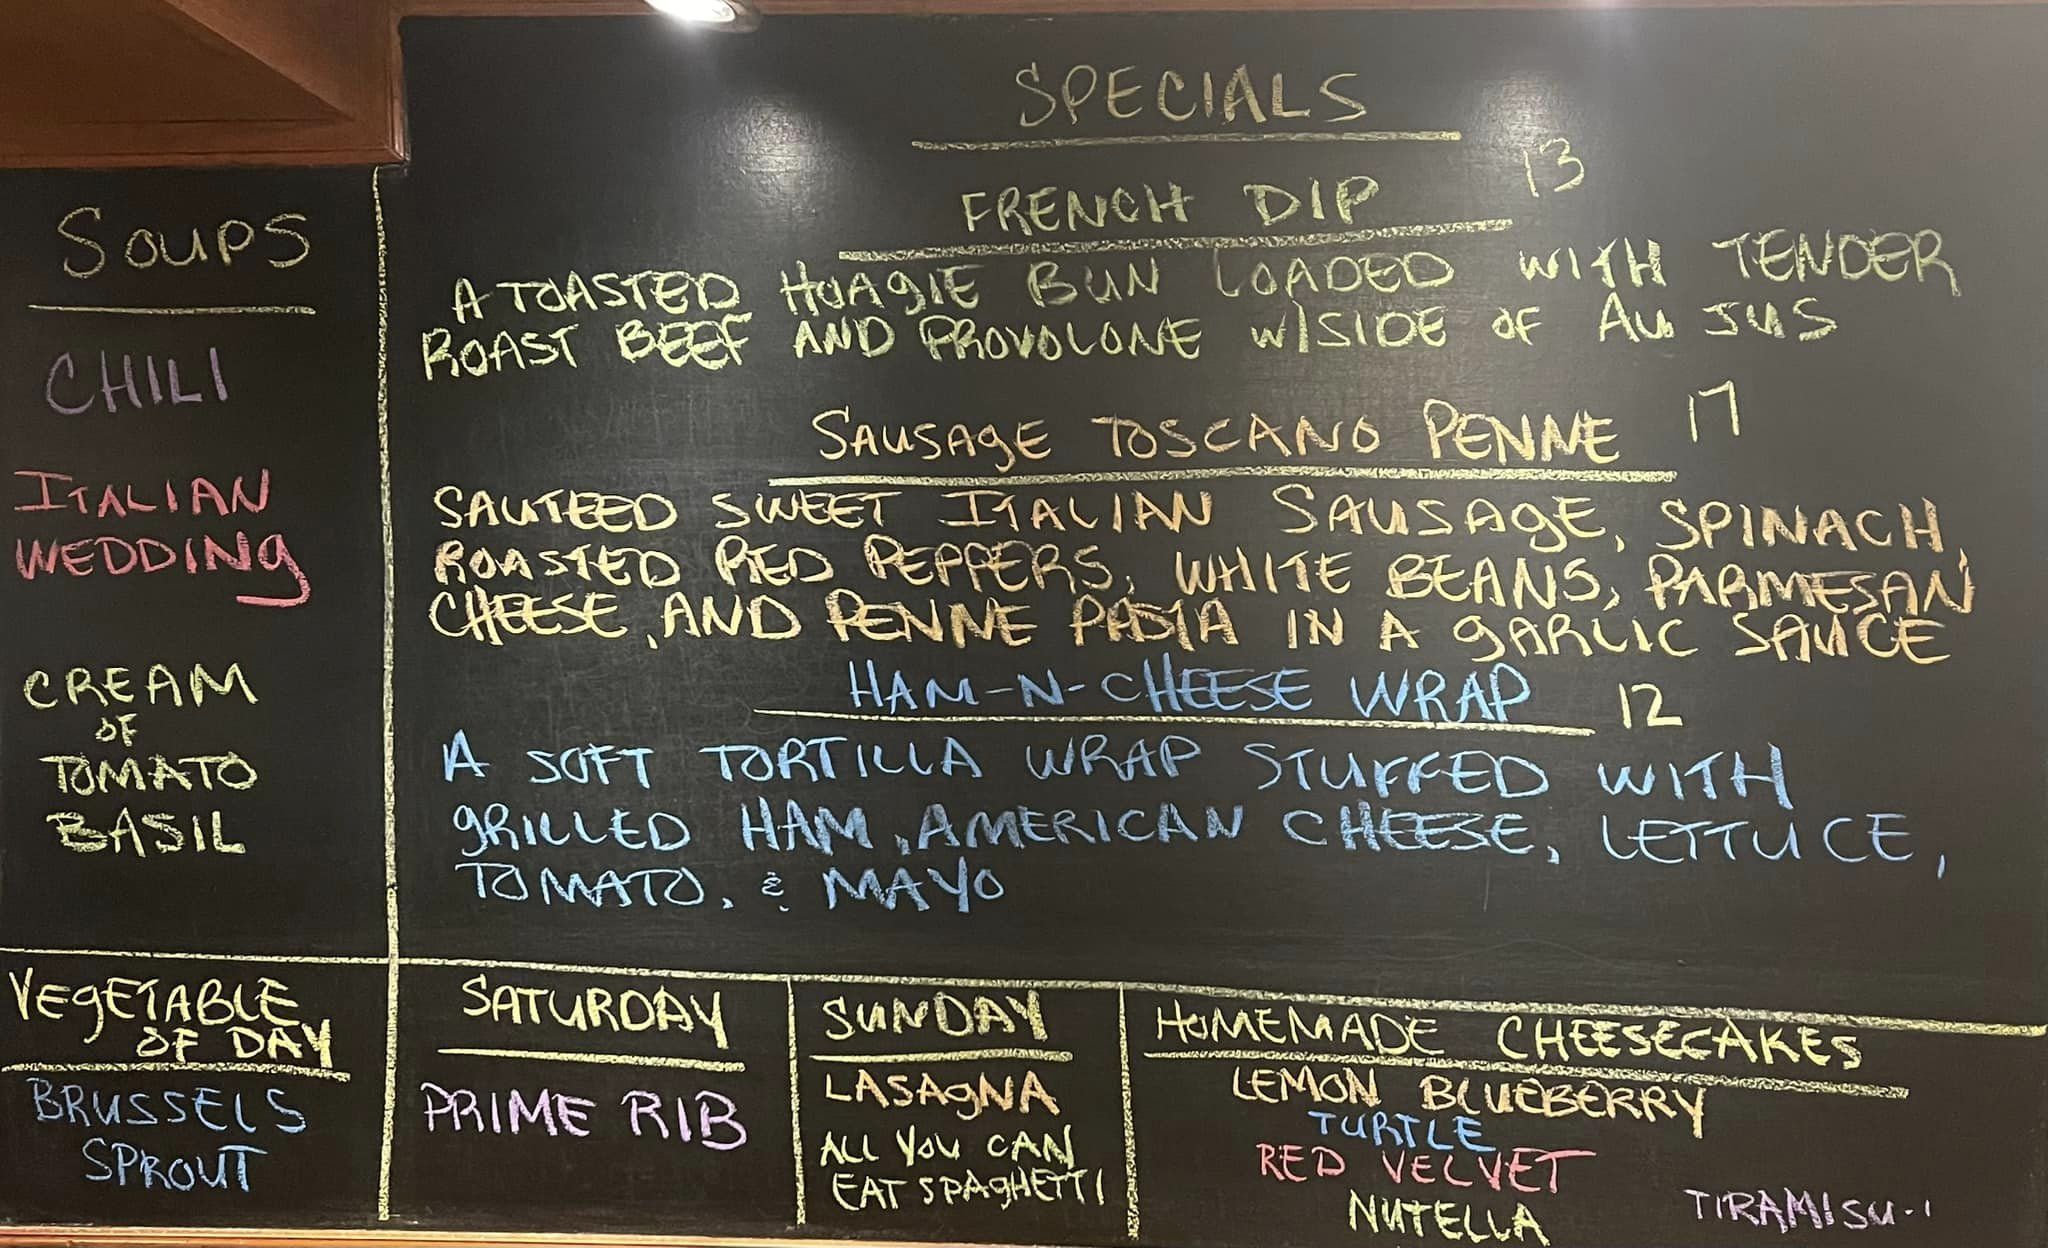 SPECIALS
FRENCH DIP 13
A TOASTED HOAGIE BUN LOADED WITH TENDER
ROAST BEEF AND PROVOLONE W/SIDE OF AU JUS
SAUSAGE TOSCANO PENNE 17
SAUTEED SWEET ITALIAN SAUSAGE, SPINACH,
ROASTED RED PEPPERS, WHITE BEANS, PARMESAN
CHEESE, AND PENNE PASTA IN A GARLIC SAUCE
HAM-N-CHEESE WRAP 12
A SOFT TORTILLA WRAP STUFFED WITH
GRILLED HAM, AMERICAN CHEESE, LETTUCE,
TOMATO, & MAYO
SOUPS
CHILI
ITALIAN
WEDDING
CREAM
OF
TOMATO
BASIL
VEGETABLE
OF DAY
BRUSSELS
SPROUT
SATURDAY
PRIME RIB
SUNDAY
LASAGNA
ALL YOU CAN
EAT SPAGHETTI
HOMEMADE CHEESECAKES
LEMON BLUEBERRY
TURTLE
RED VELVET
NUTELLA
TIRAMISU-1